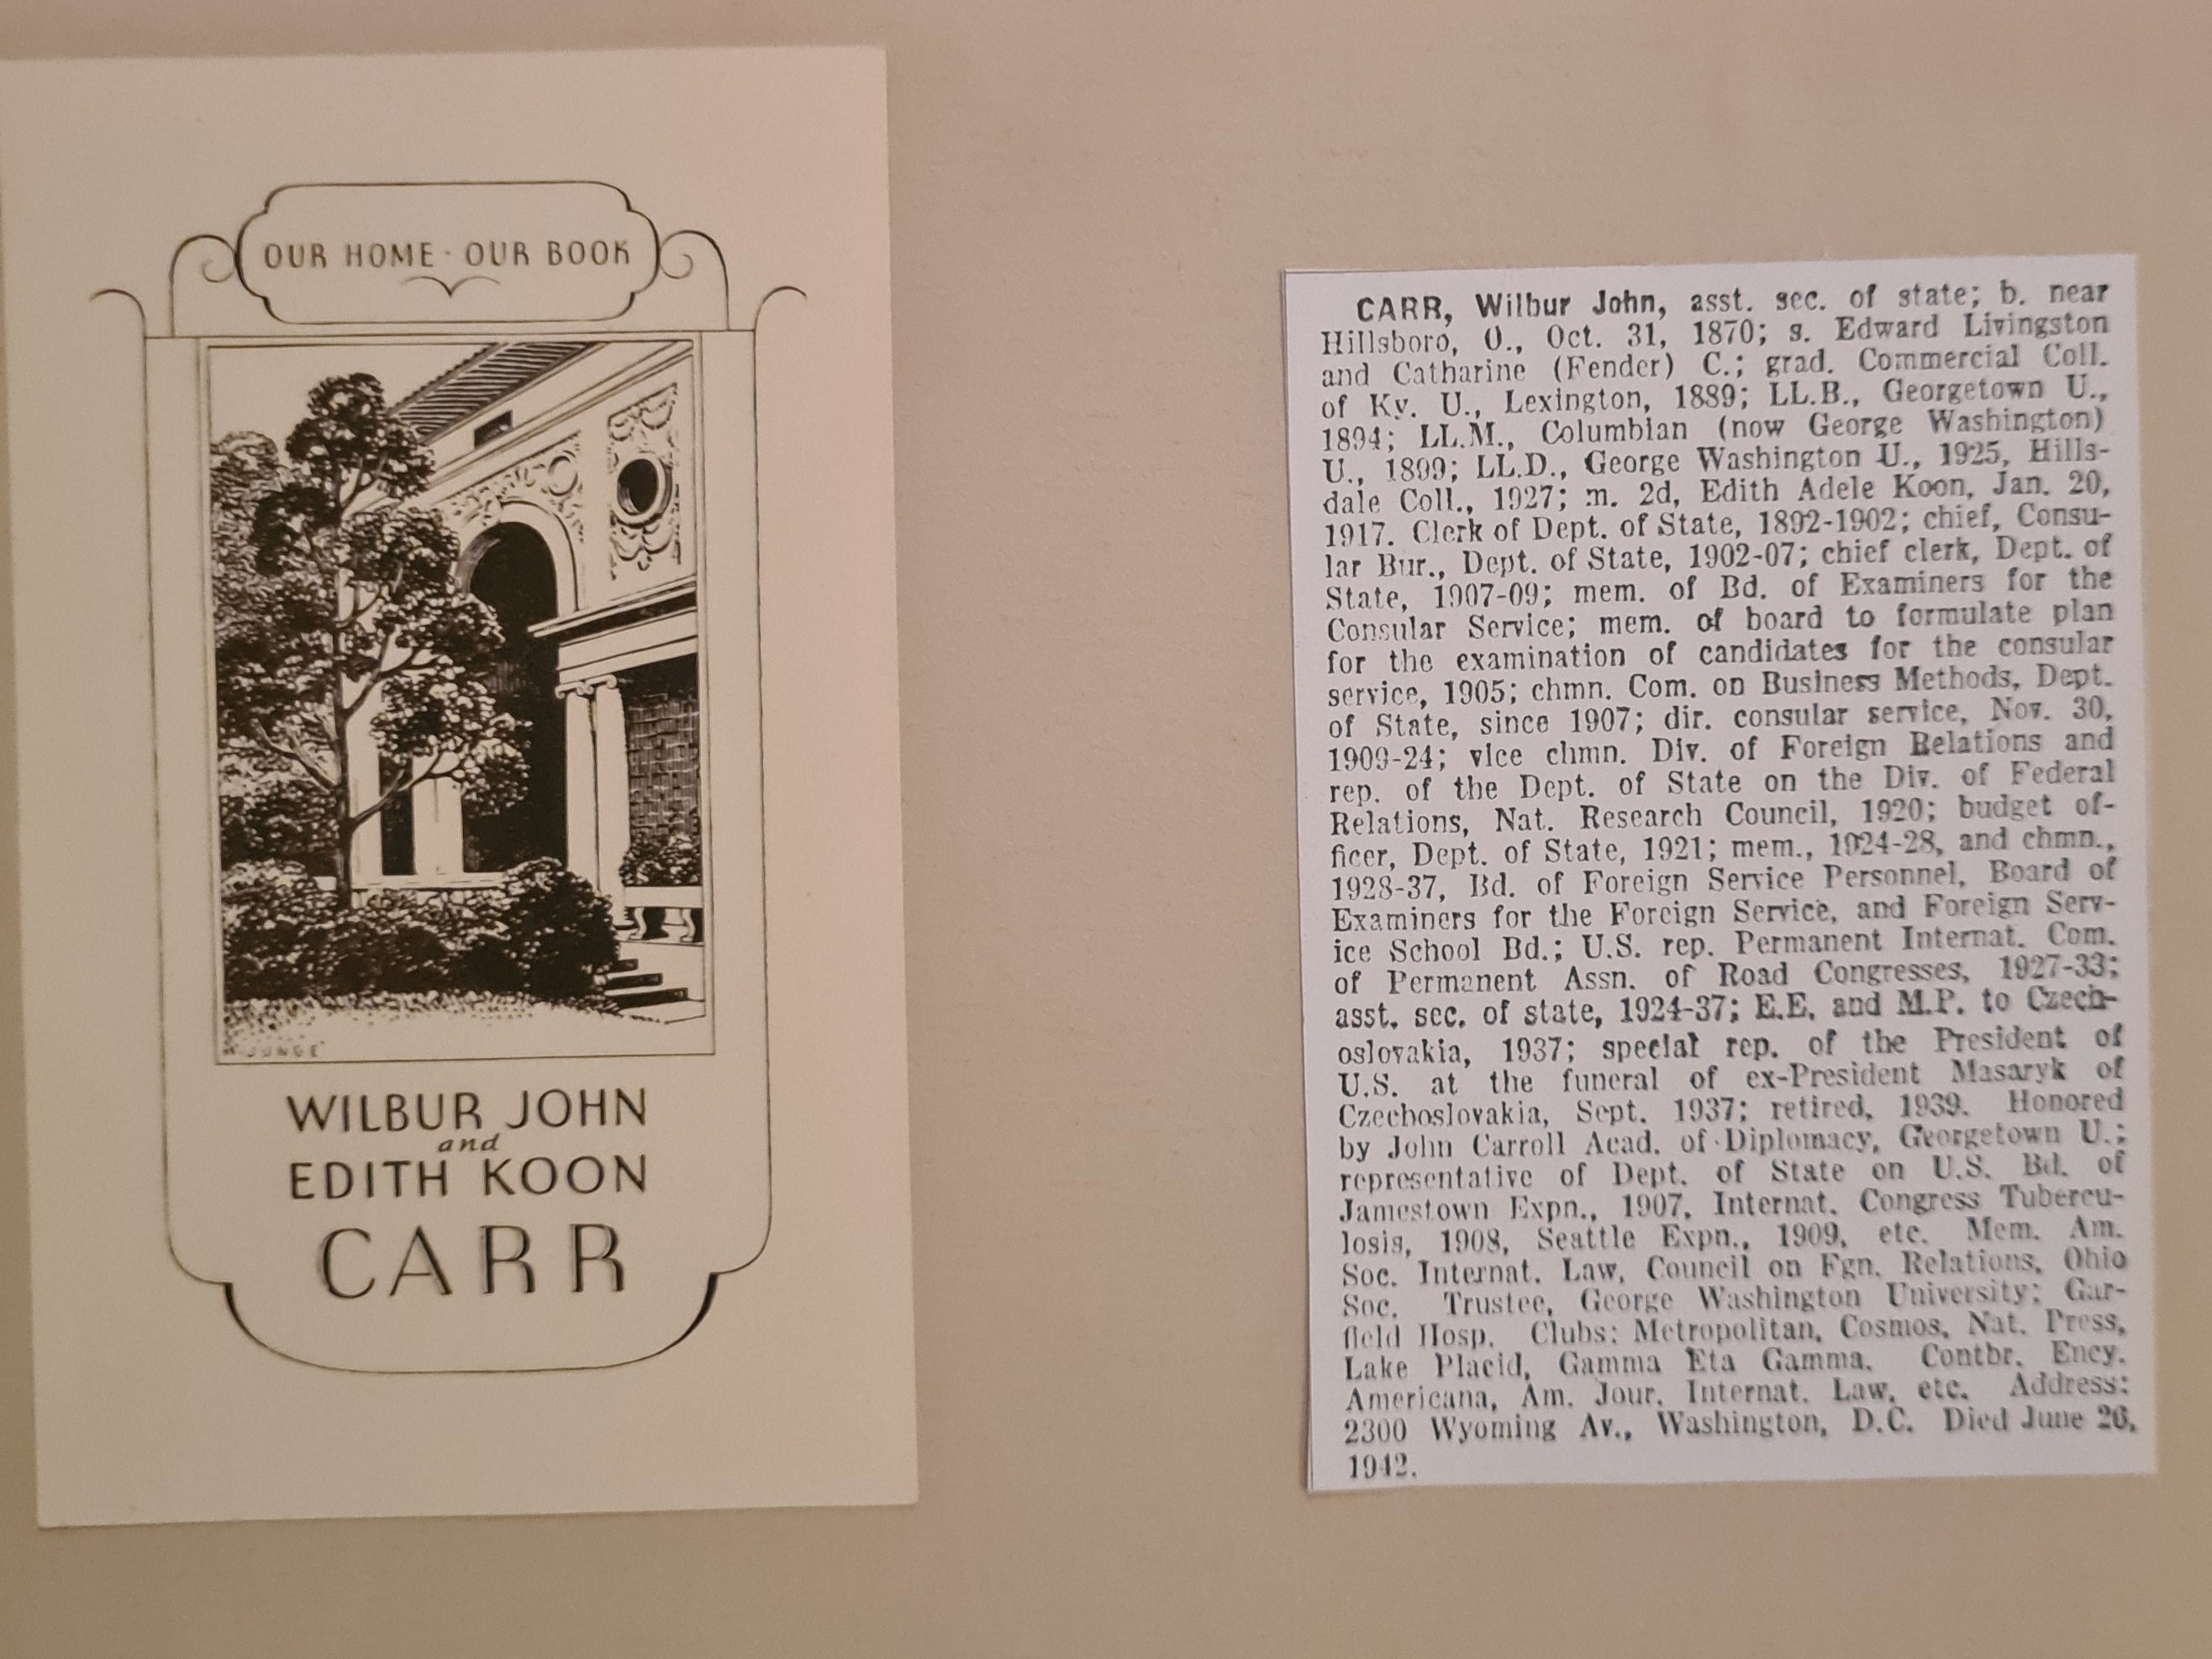 OUR HOME · OUR BOOK
JUNGE
WILBUR JOHN
and
EDITH KOON
CARR
CARR, Wilbur John, asst. sec. of state; b. near
Hillsboro, O., Oct. 31, 1870; s. Edward Livingston
and Catharine (Fender) C.; grad. Commercial Coll.
of Ky. U., Lexington, 1889; LL.B., Georgetown U.,
1894; LL.M., Columbian (now George Washington)
U., 1899; LL.D., George Washington U., 1925, Hills-
dale Coll., 1927; m. 2d, Edith Adele Koon, Jan. 20,
1917. Clerk of Dept. of State, 1892-1902; chief, Consu-
lar Bur., Dept. of State, 1902-07; chief clerk, Dept. of
State, 1907-09; mem. of Bd. of Examiners for the
Consular Service; mem. of board to formulate plan
for the examination of candidates for the consular
service, 1905; chmn. Com. on Business Methods, Dept.
of State, since 1907; dir. consular service, Nov. 30,
1909-24; vice chmn. Div. of Foreign Relations and
rep. of the Dept. of State on the Div. of Federal
Relations, Nat. Research Council, 1920; budget of-
ficer, Dept. of State, 1921; mem., 1924-28, and chmn.,
1928-37, Bd. of Foreign Service Personnel, Board of
Examiners for the Foreign Service, and Foreign Serv-
ice School Bd.; U.S. rep. Permanent Internat. Com.
of Permanent Assn. of Road Congresses, 1927-33;
asst. sec. of state, 1924-37; E.E. and M.P. to Czech-
oslovakia, 1937; special rep. of the President of
U.S. at the funeral of ex-President Masaryk of
Czechoslovakia, Sept. 1937; retired, 1939. Honored
by John Carroll Acad. of Diplomacy, Georgetown U.;
representative of Dept. of State on U.S. Bd. of
Jamestown Expn., 1907, Internat. Congress Tubercu-
losis, 1908, Seattle Expn., 1909, etc. Mem. Am.
Soc. Internat. Law, Council on Fgn. Relations, Ohio
Soc. Trustee, George Washington University; Gar-
field Hosp. Clubs: Metropolitan, Cosmos, Nat. Press,
Lake Placid, Gamma Eta Gamma. Contbr. Ency.
Americana, Am. Jour. Internat. Law, etc. Address:
2300 Wyoming Av., Washington, D.C. Died June 26,
1942.